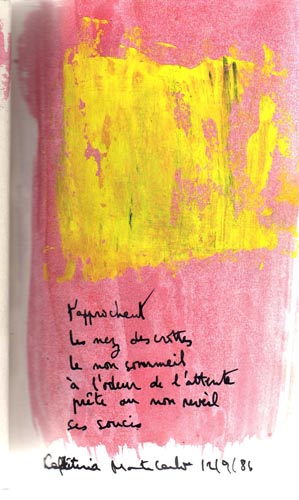 s'approchent
les nez des crottes
le non sommeil
à l'odeur de l'attente
prête au non reveil
ses soucis
Monte Carlo 12/9/86